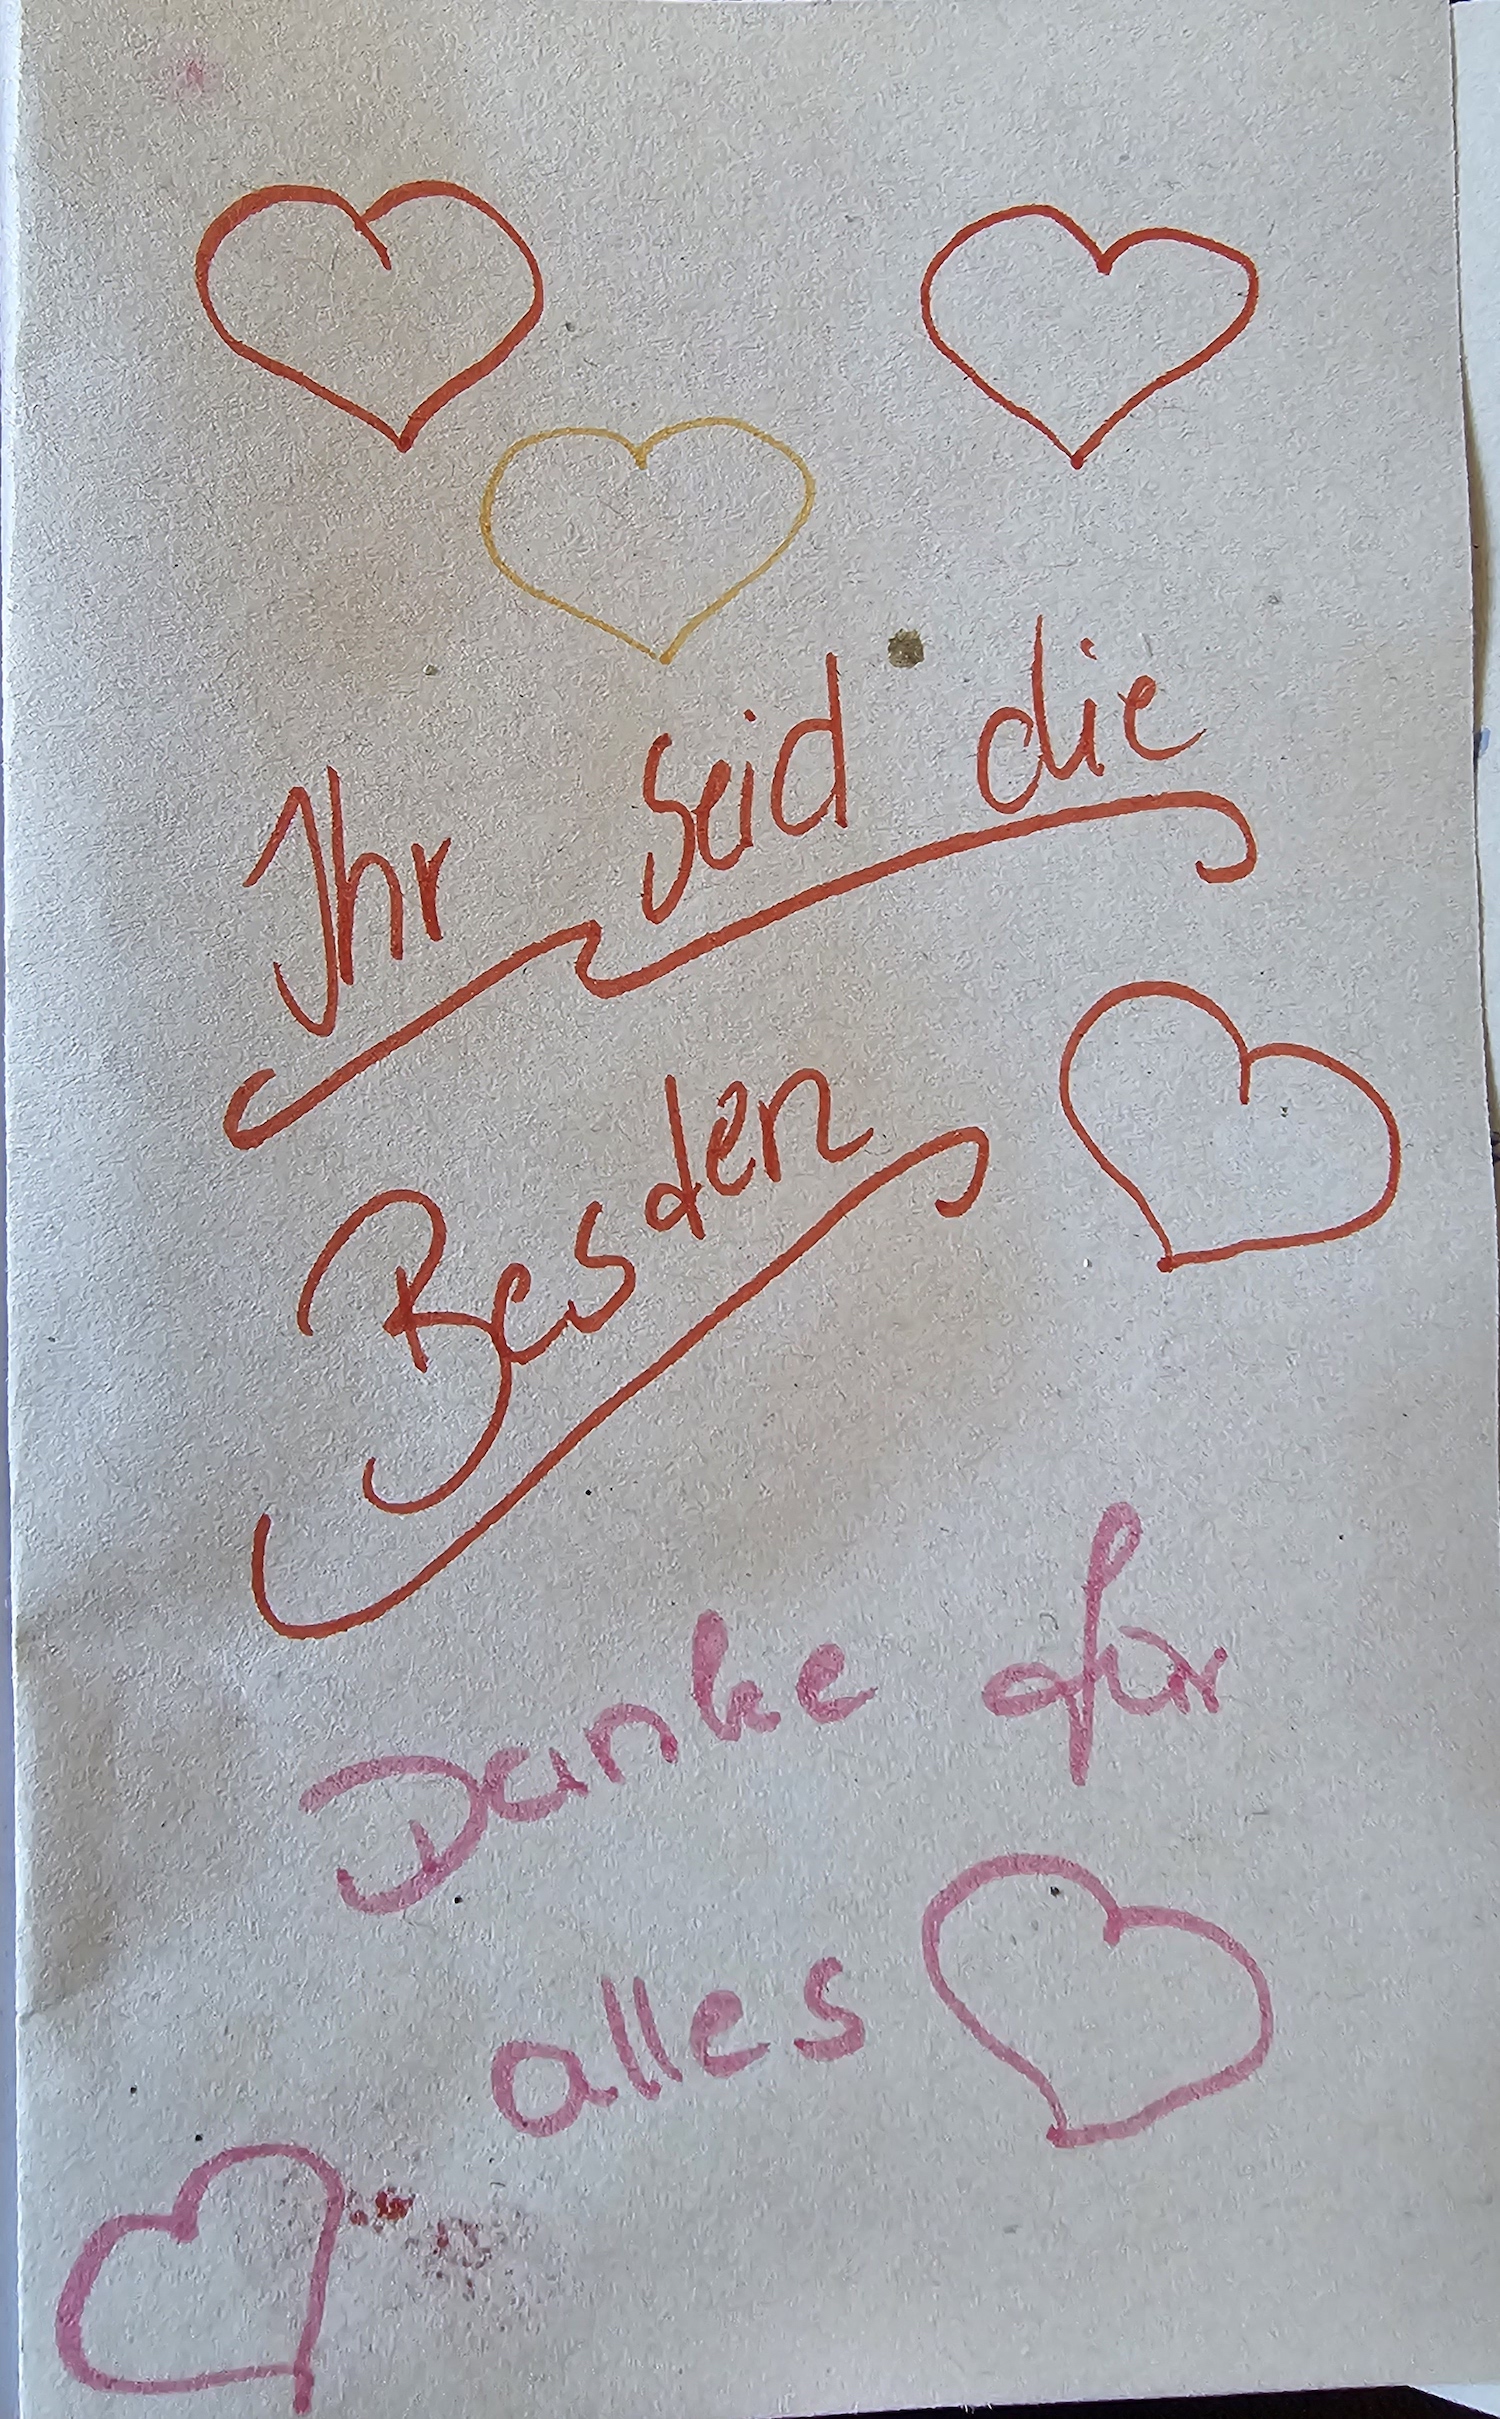 Ihr seid die
Besden
Danke für
alles